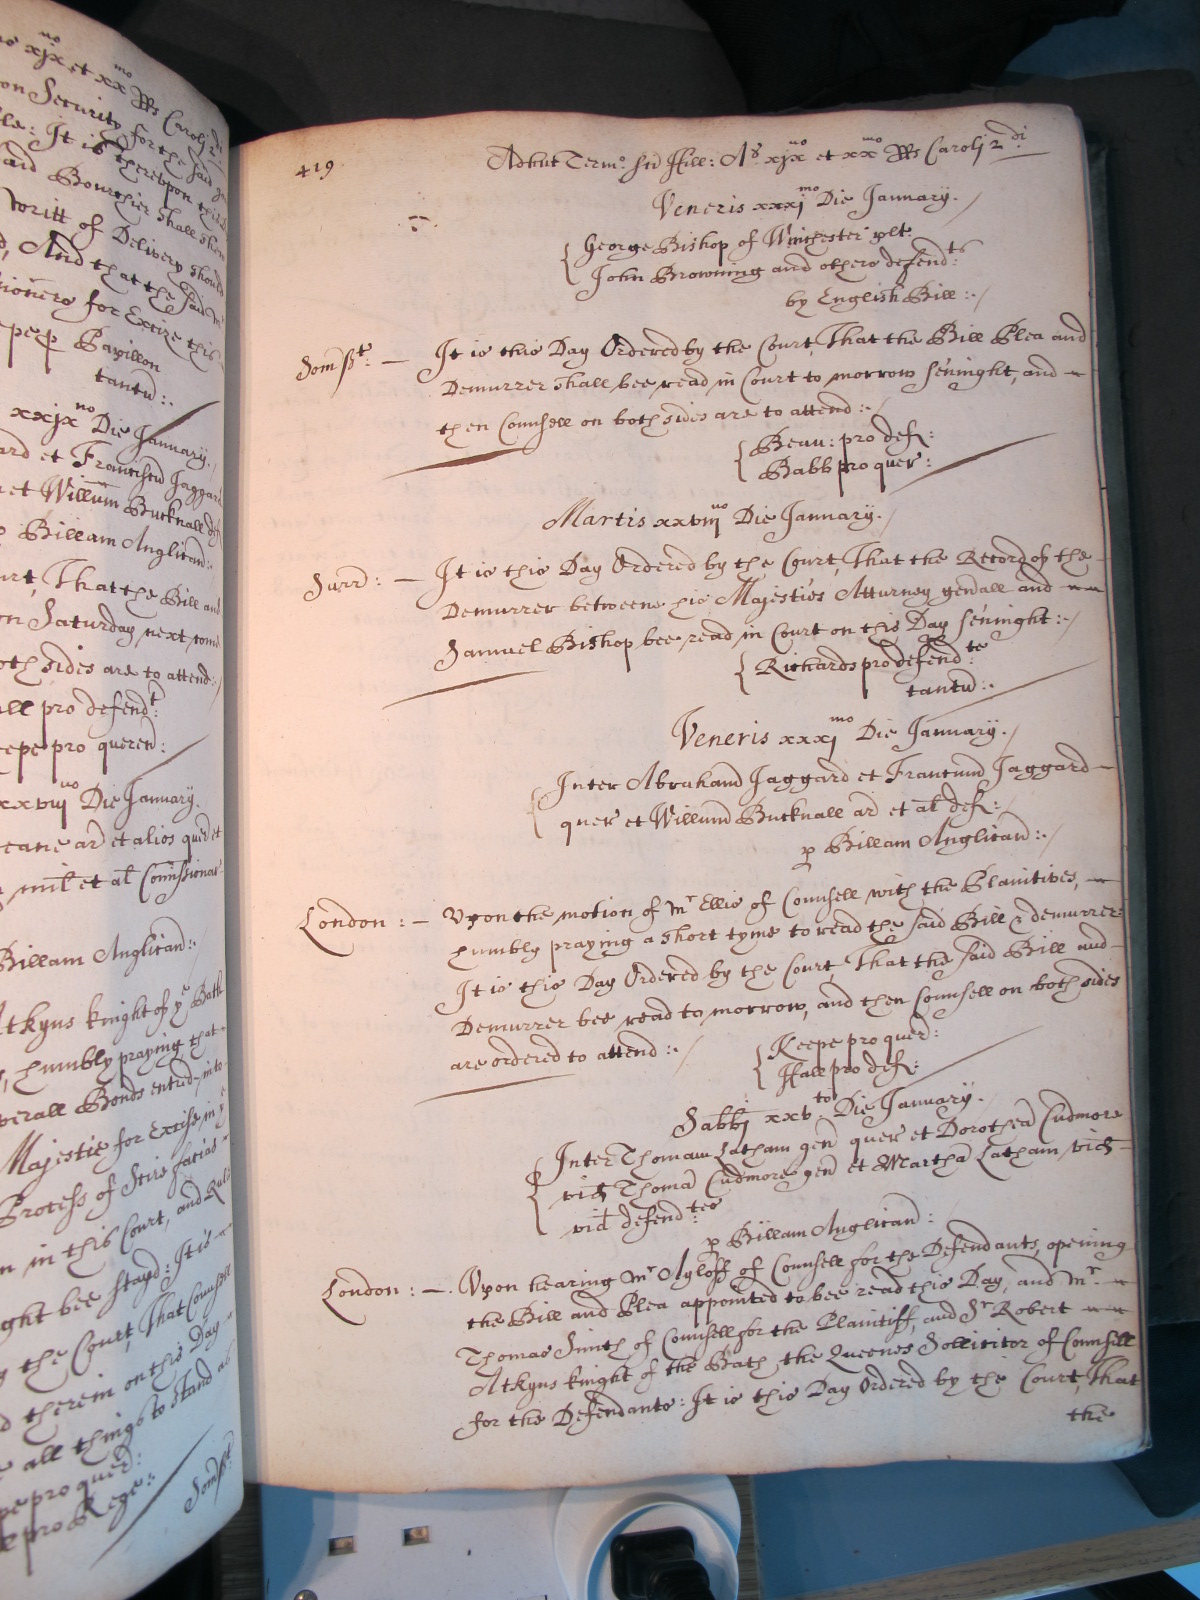 no xjx et xx mo RRs Caroli 2 di
on Security for the said
le: It is thereupon
aid Bourchier shall shew
writt of Delivery should
d, And that the said Mr
ioners for Excize this
epe p Papillon
tantu :.
xxjx no Die January.
ard et Franciscu Jaggard
et Willum Bucknall
Billam Anglican:
urt, That the Bill and
on Saturday next come
oth sides are to attend:
all pro defendt:
eepe pro queren:
xxviij no Die January.
cane ar et alios quer et
mil et al Comissionar
Billam Anglican:.
Atkyns knight of ye Bath
, humbly praying that
verall Bonds entred into
Majestie for Excise in
Process of Scire facias
n in this Court, and
ght bee stayd: It is
y the Court, That Counsell
d therein on this Day
e all things to stand as
pe pro quer:
e pro Rege:.
Somsst
419
Adhuc Termo: Sci Hill: Ao xjx no et xx mo RRs Carolj 2 di.
Veneris xxxj mo Die January.
George Bishop of Winchester plt
John Browning and others defendts:
by English Bill:.
Somsst: — It is this Day Ordered by the Court, That the Bill Plea and
Demurrer shall bee read in Court to morrow senight, and
then Counsell on both sides are to attend:.
Beau: pro def:
Babb pro quer:
Martis xxviij no Die January.
Surr: — It is this Day Ordered by the Court, That the Record of the
Demurrer betweene his Majesties Atturney gen̄all and
Samuel Bishop bee read in Court on this Day senight:.
Richards pro defendte:
tantu:.
Veneris xxxj mo Die January.
Inter Abrahamū Jaggard et Franciscū Jaggard
quer et Willum̄ Bucknall ar et al def:
p Billam Anglican̄:.
London: — Upon the motion of Mr Ellis of Counsell with the Plaintives,
humbly praying a short tyme to read the said Bill & demurrer:
It is this Day Ordered by the Court, That the said Bill and
Demurrer bee read to morrow, and then Counsell on both sides
are ordered to attend:.
Keepe pro quer:
Hall pro def:
Sabbj xxv to: Die January.
Inter Thomam Latham gen̄ quer et Dorothea Cudmore
vid Thoma Cudmore gen̄ et Martha Latham vid
vid defendtes
p Billam Anglican̄:
London: — Upon hearing Mr Ayloff of Counsell for the Defendants, opening
the Bill and Plea appointed to bee read this Day, and Mr
Thomas Smith of Counsell for the Plaintiff, and Sr Robert
Atkyns knight of the Bath, the Queenes Sollicitor of Counsell
for the Defendants: It is this Day Ordered by the Court, That
the